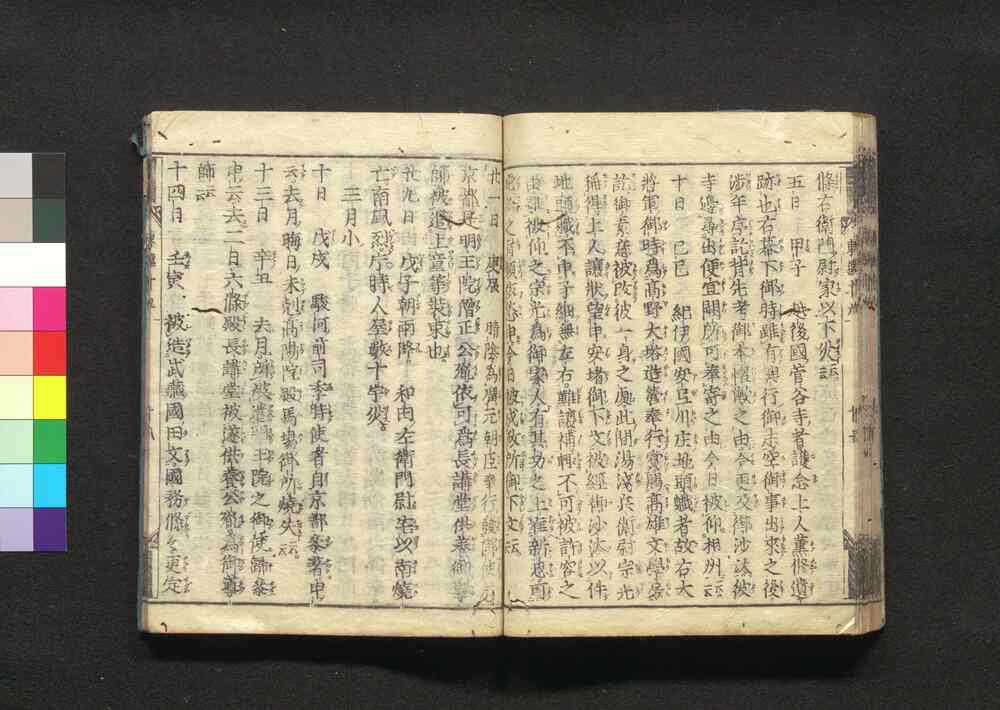 條右衛門尉家以下災云云
五日 甲子 越後國菅谷寺者護念上人薫修遺
跡也右幕下御時雖有興行御志空御事出來之後
渉年序訖背先考御本懷歟之由今更及御沙汰彼
寺邊尋出便宜闕所可奉寄之由今日被仰相州云云
十日 己巳 紀伊國安弖川庄地頭職者故右大
將軍御時爲高野大塔造營奉行賞賜高雄文學房
訖御素意被改彼一身之處此間湯淺兵衛尉宗光
稱得上人讓狀望申安堵御下文被經御沙汰以件
地頭職不申子細無左右難讓補輙不可被許容之
由雖被仰之宗光爲御家人有其功之上
今日被成政所御下文云云
廿一日 庚辰 晴陰爲廣元朝臣奉行
京都是明王院僧正公胤依可爲長講堂供養御導
師被進上童等裝束也
廿九日 戊子 朝雨降 和田左衛門尉宅以南燒
亡南風烈于時人屋數十宇災
三月小
十日 戊戌 駿河前司季時使者自京都參着申
云去月晦日未剋高陽院殿馬場御所燒失云云
十三日 辛丑 去月所被遣明王院之御使歸參
申云去二日六條殿長講堂被遂供養公胤爲御導
師云云
十四日 壬寅 被造武藏國田文國務條々更定